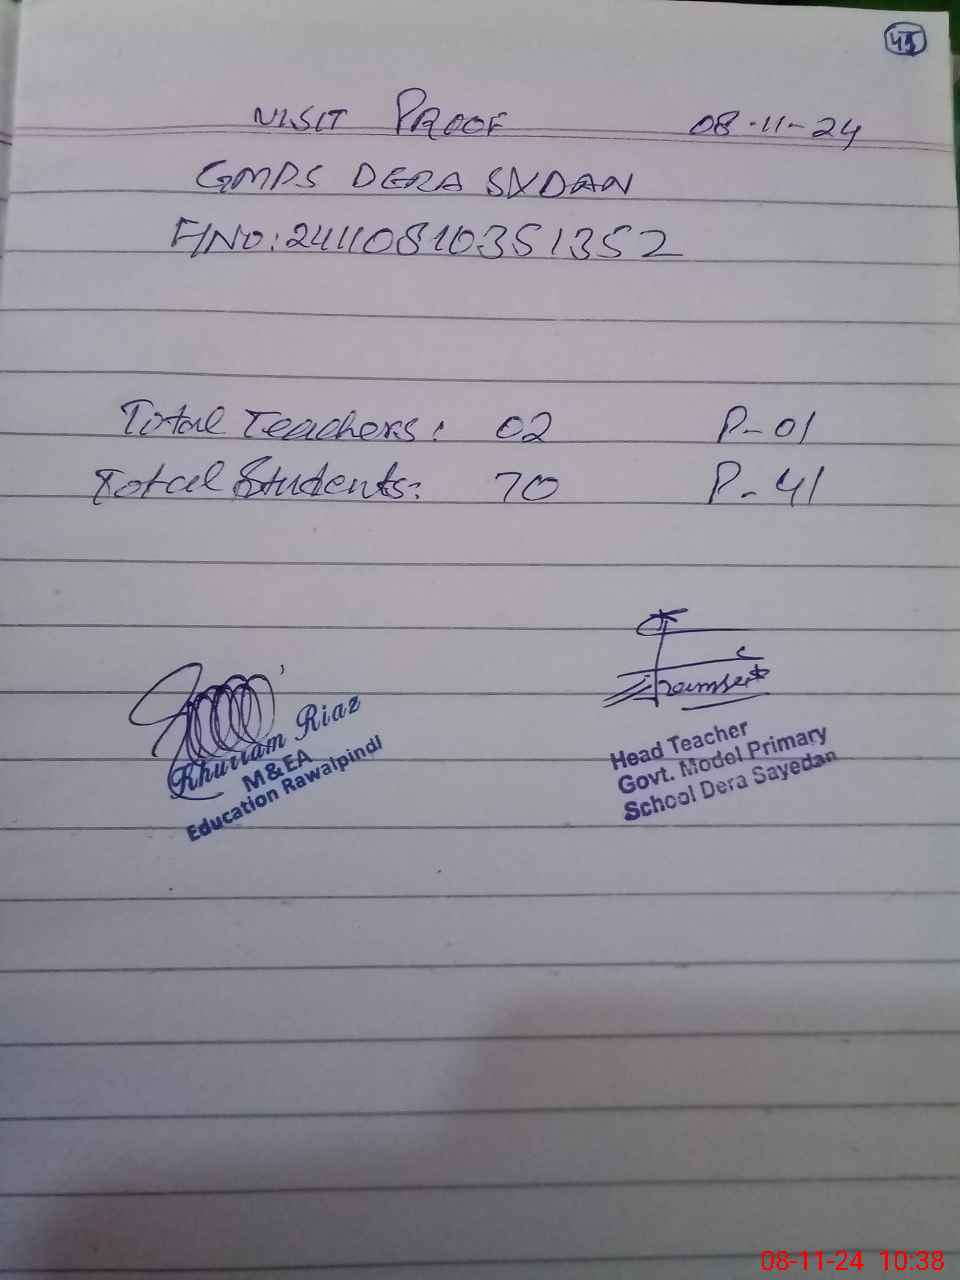 45
VISIT PROOF 08-11-24
GMPS DERA SYDAN
F/NO: 24110810351352
Total Teachers: 02 P-01
Total Students: 70 P-41
Khurram Riaz
M&EA
Education Rawalpindi
Head Teacher
Govt. Model Primary
School Dera Sayedan
08-11-24 10:38